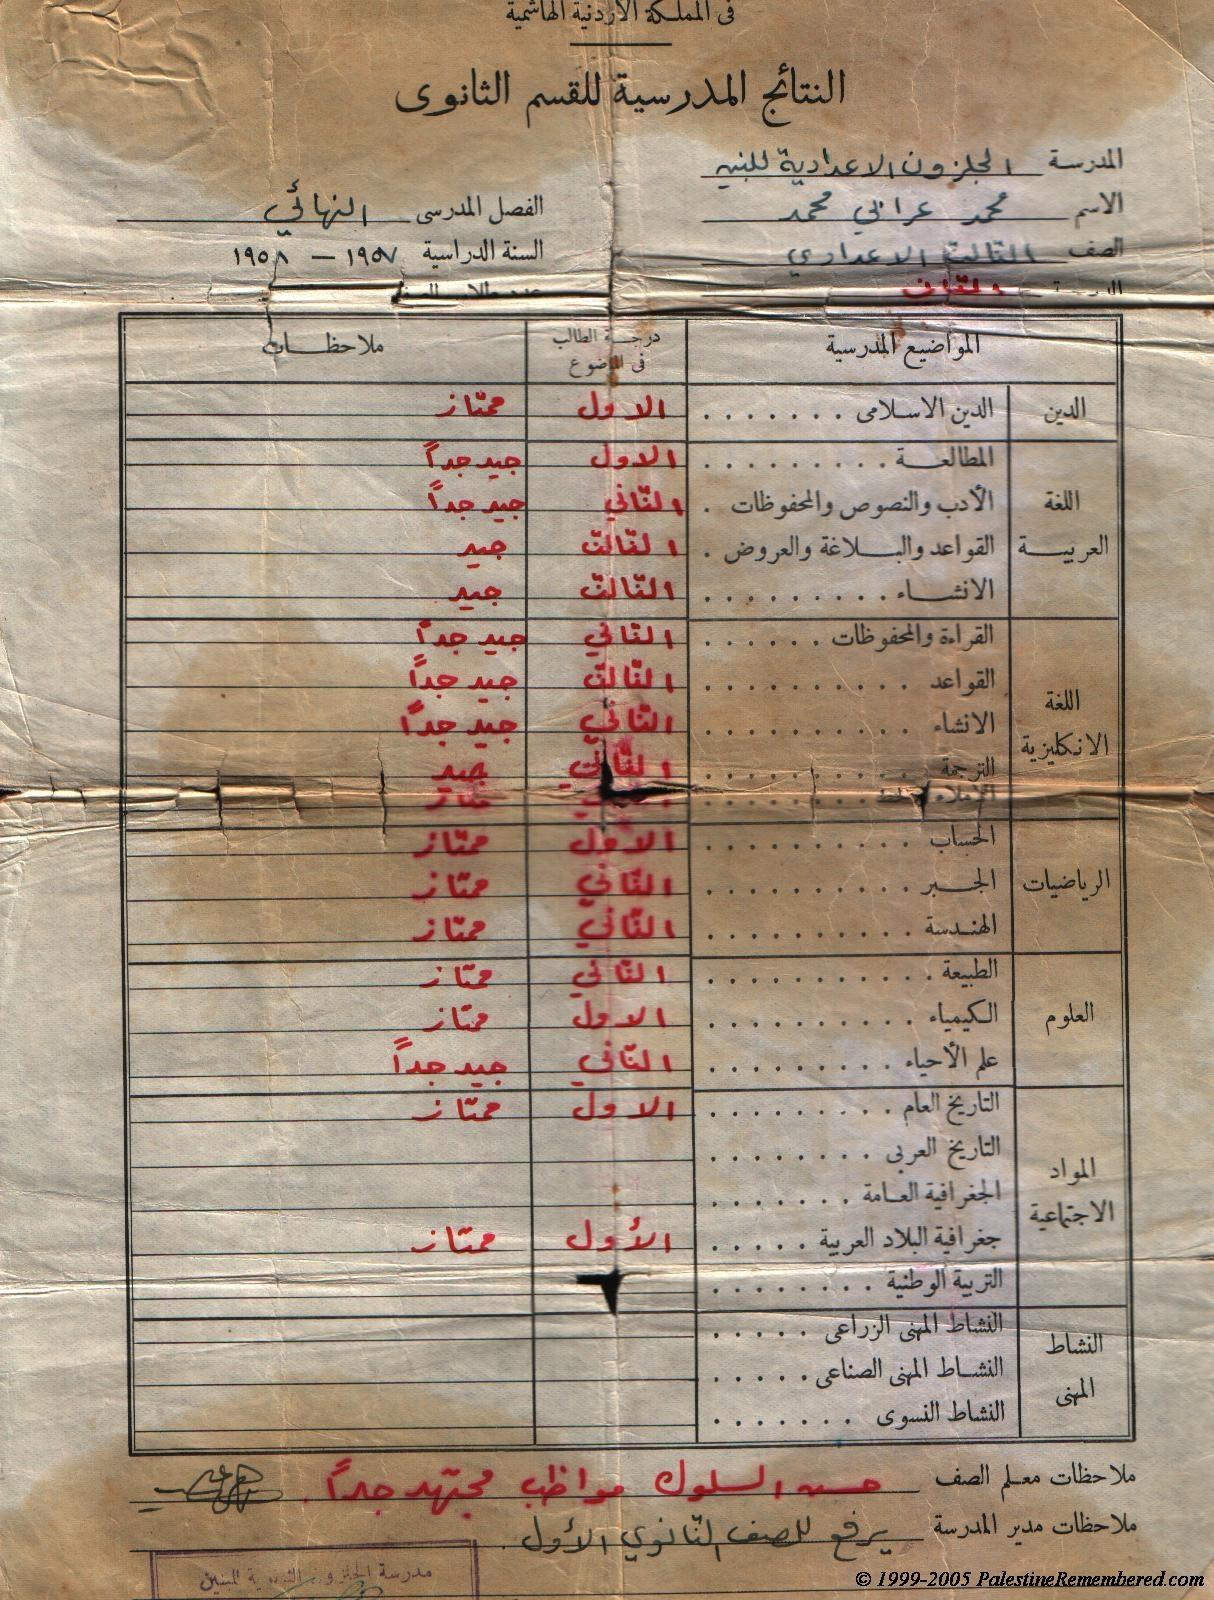 فى المملكة الاردنية الهاشمية
النتائج المدرسية للقسم الثانوى
المدرسة الجلزون الاعدادية للبنين
الاسم محمد عرابي محمد
الفصل المدرسى النهائي
الصف الثالث الاعدادي
السنة الدراسية ١٩٥٧ - ١٩٥٨
المواضيع المدرسية درجة الطالب فى الموضوع ملاحظات
الدين الدين الاسلامى الاول ممتاز
اللغة العربية
المطالعة الاول جيد جداً
الأدب والنصوص والمحفوظات الثاني جيد جداً
القواعد والبلاغة والعروض الثالث جيد
الانشاء الثالث جيد
اللغة الانكليزية
القراءة والمحفوظات الثاني جيد جداً
القواعد الثالث جيد جداً
الانشاء الثاني جيد جداً
الترجمة الثاني جيد
الاملاء ممتاز
الرياضيات
الحساب الاول ممتاز
الجبر الثاني ممتاز
الهندسة الثاني ممتاز
العلوم
الطبيعة الثاني ممتاز
الكيمياء الاول ممتاز
علم الأحياء الثاني جيد جداً
المواد الاجتماعية
التاريخ العام الاول ممتاز
التاريخ العربى
الجغرافية العامة
جغرافية البلاد العربية الأول ممتاز
التربية الوطنية
النشاط المهنى
النشاط المهنى الزراعى
النشاط المهنى الصناعى
النشاط النسوى
ملاحظات معلم الصف حسن السلوك مواظب مجتهد جداً.
ملاحظات مدير المدرسة يرفع للصف الثانوي الأول.
مدرسة الجلزون للبنين
© 1999-2005 PalestineRemembered.com